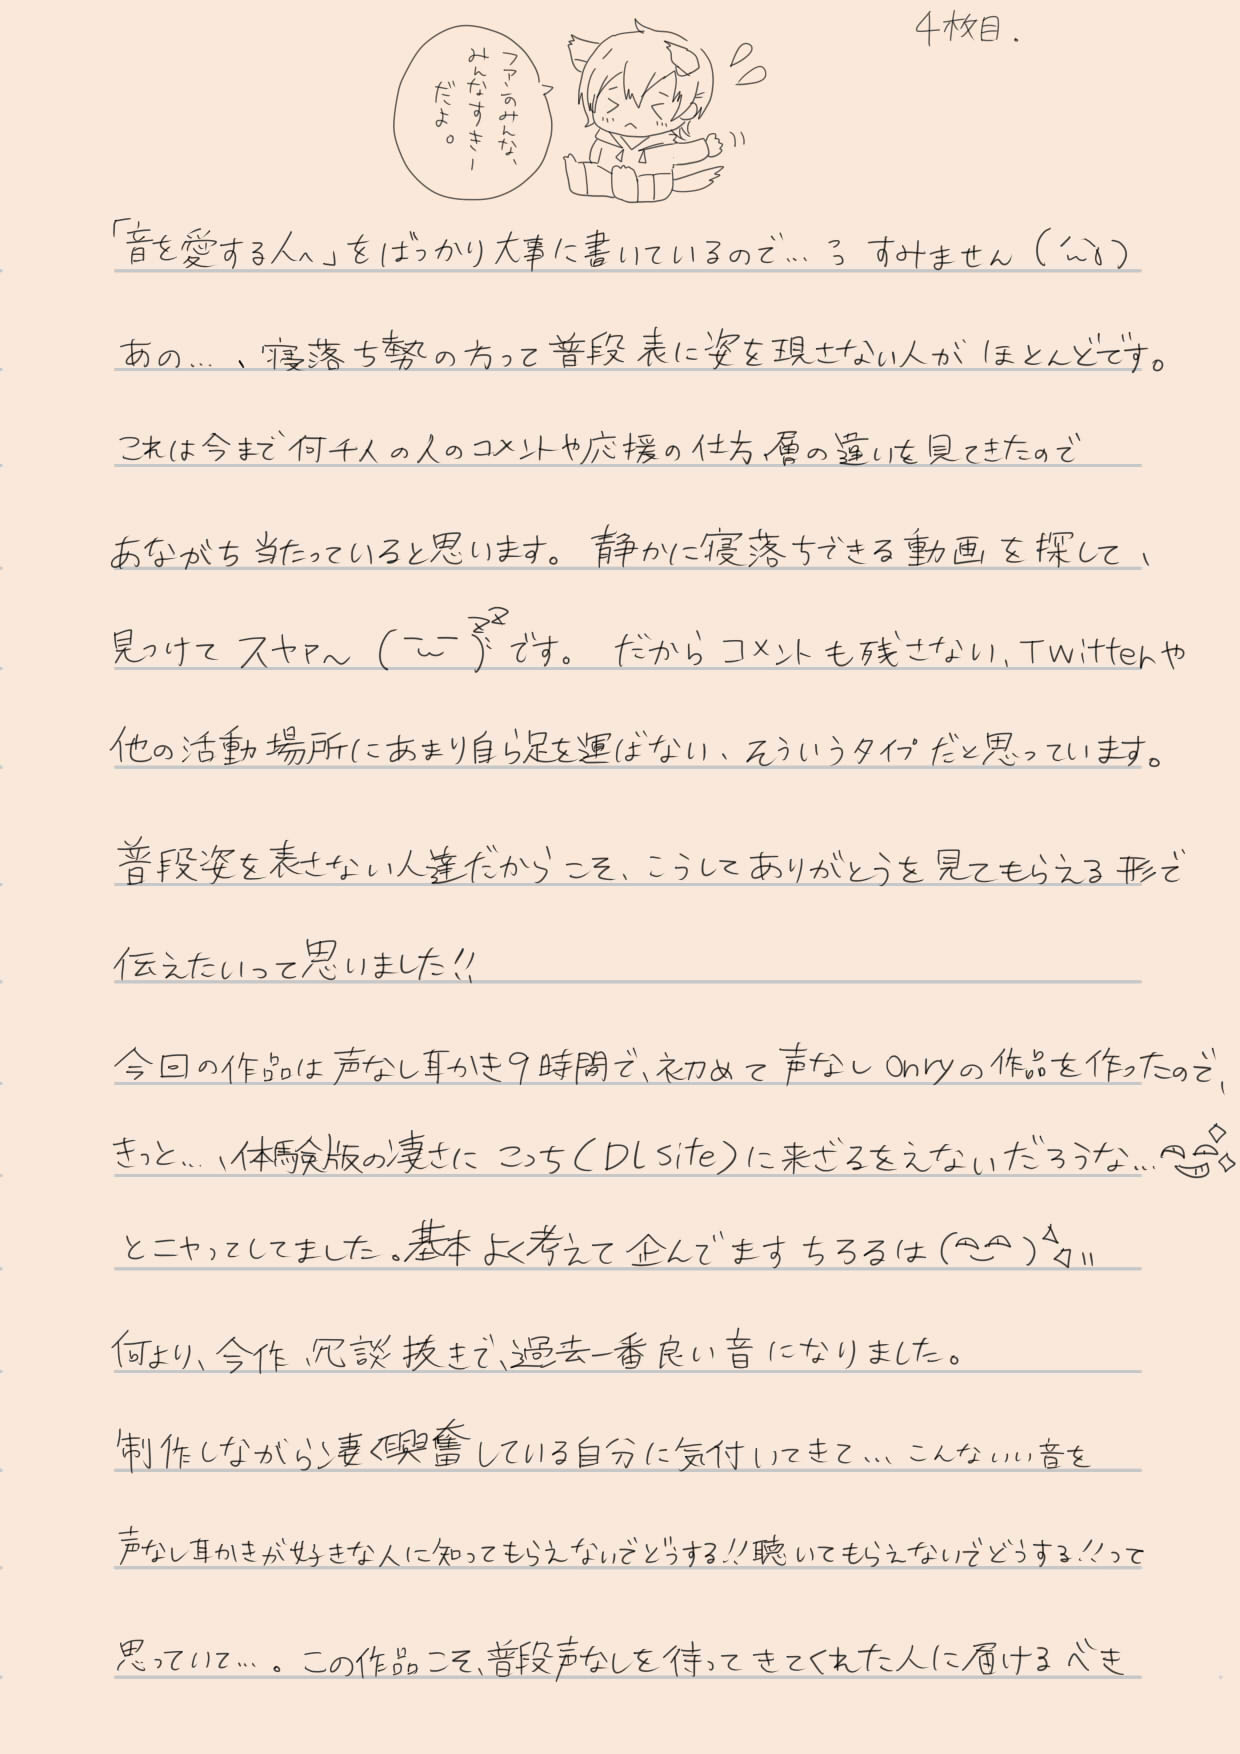 4枚目.
ファンのみんな、
みんなすきー
だよ。
「音を愛する人へ」をばっかり大事に書いているので…う すみません(´ω`)
あの…、寝落ち勢の方って普段表に姿を現さない人がほとんどです。
これは今まで何千人の人のコメントや応援の仕方、層の違いを見てきたので
あながち当たっていると思います。静かに寝落ちできる動画を探して、
見つけてスヤァ〜(ーωー)zzです。だからコメントも残さない、Twitterや
他の活動場所にあまり自ら足を運ばない、そういうタイプだと思っています。
普段姿を表さない人達だからこそ、こうしてありがとうを見てもらえる形で
伝えたいって思いました!!
今回の作品は声なし耳かき9時間で、初めて声なしonryの作品を作ったので、
きっと…、体験版の凄さにこっち(DLsite)に来ざるをえないだろうな…
とニヤってしてました。基本よく考えて企んでますちろるは
何より、今作、冗談抜きで、過去一番良い音になりました。
制作しながら凄く興奮している自分に気付いてきて…こんないい音を
声なし耳かきが好きな人に知ってもらえないでどうする!!聴いてもらえないでどうする!!って
思っていて…。この作品こそ、普段声なしを待ってきてくれた人に届けるべき